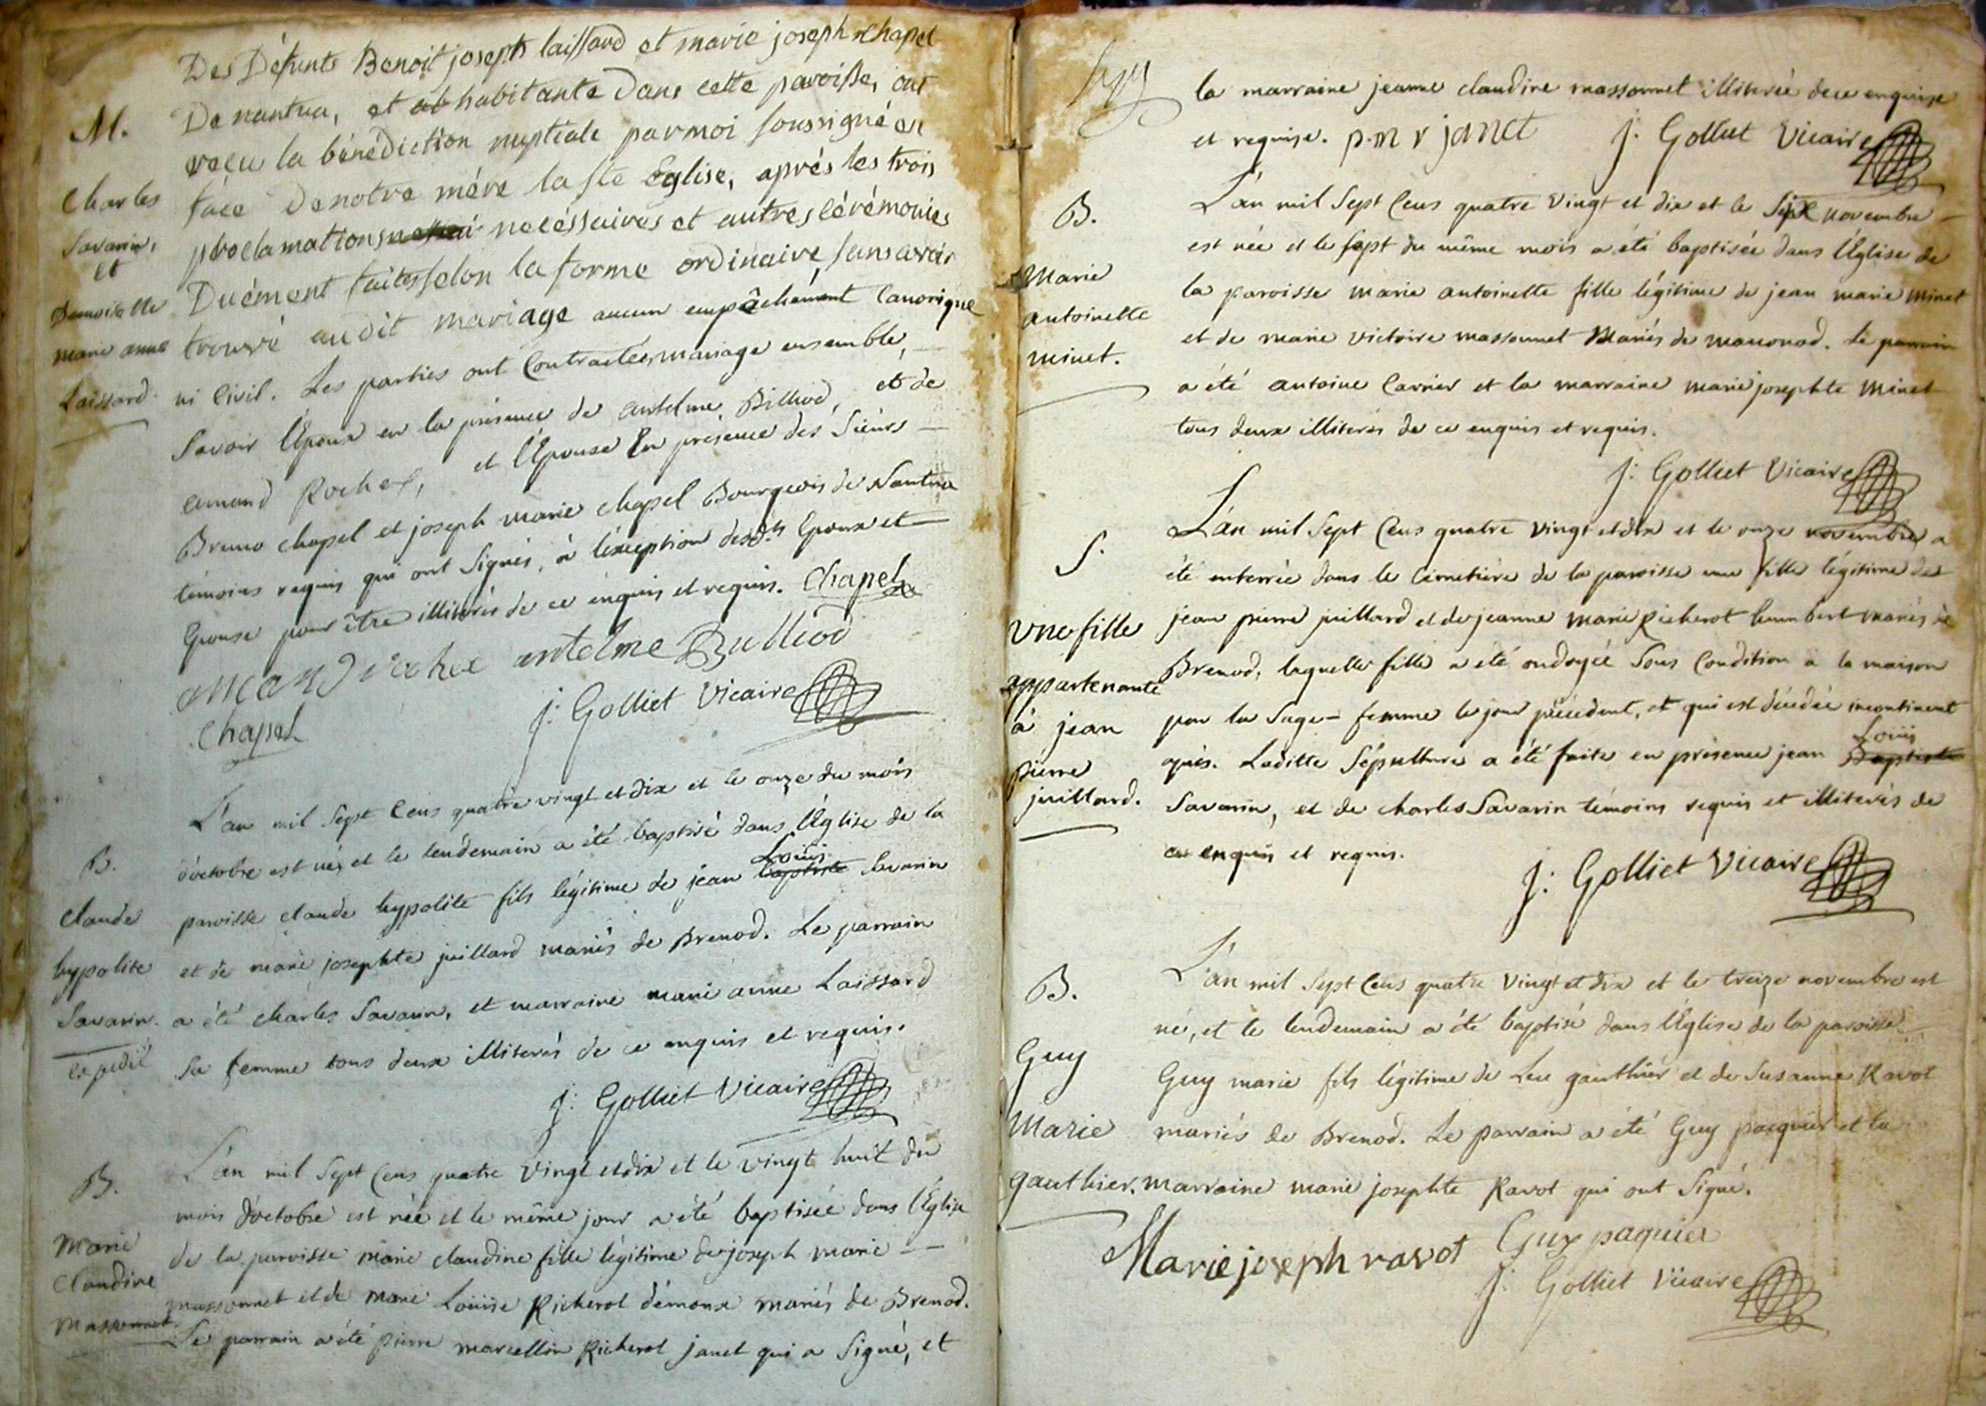 Des Défunts Benoit joseph laissard et marie joseph chapel
M.
De nantua, et habitante Dans cette paroisse, ont
reçu la bénédiction nuptiale par moi soussigné en
Charles
Savarin,
et
Demoiselle
marie anne
Laissard.
face De notre mère la ste Eglise, après les trois
proclamations necéssaires et autres cérémonies
Duément faites selon la forme ordinaire, sans avoir
trouvé au dit mariage aucun empêchément canonique
ni Civil. Les parties ont Contractées mariage ensemble,
Savoir l'Epoux en la présence de antelme Billiod, et de
amand Rochet, et l'Epouse En présence des Siéurs
Bruno chapel et joseph marie chapel Bourgeois de Nantua
témoins requis qui ont Signés, à l'éxception desdts Epoux et
Epouse pour être illiterés de ce enquis et requis. Chapel
amand rochet antelme Bulliod
chapel
j: Golliet Vicaire
B.
claude
hypolite
Savarin.
expedié
L'an mil Sept Cens quatre vingt et dix et le onze du mois
d'octobre est né, et le lendemain a été baptisé dans l'Église de la
paroisse claude hypolite fils légitime de jean baptiste Louis Savarin
et de marie josephte juillard mariés de Brenod. Le parrain
a été charles Savarin, et marraine marie anne Laissard
Sa femme tous deux illiterés de ce enquis et requis.
j: Golliet Vicaire
B.
Marie
Claudine
massonnet.
L'an mil Sept Cens quatre vingt et dix et le vingt huit du
mois d'octobre est née et le même jour a été baptisée dans l'Église
de la paroisse marie claudine fille légitime de joseph marie
massonnet et de marie Louise Richerot démoux mariés de Brenod.
Le parrain a été pierre marcellin Richerot janet qui a Signé, et
la marraine jeanne claudine massonnet illiterée de ce enquise
et requise. p.m r janet j: Golliet Vicaire
B.
Marie
antoinette
minet.
L'an mil Sept Cens quatre Vingt et dix et le Six novembre
est née et le sept du même mois a été baptisée dans l'Eglise de
la paroisse marie antoinette fille légitime de jean marie minet
et de marie victoire massonnet Mariés de maconod. Le parrain
a été antoine Carrier et la marraine marie josephte Minet
tous deux illiterés de ce enquis et requis.
j: Golliet Vicaire
S.
Une fille
appartenante
à jean
pierre
juillard.
L'an mil Sept Cens quatre vingt et dix et le onze novembre a
été enterrée dans le Cimetière de la paroisse une fille légitime de
jean pierre juillard et de jeanne marie Richerot humbert mariés de
Brenod, laquelle fille a été ondoyée Sous Condition à la maison
par la Sage-femme le jour précédent, et qui est décédée incontinent
après. Laditte Sépulture a été faite en présence jean Baptiste Louis
Savarin, et de charles Savarin témoins requis et illiterés de
ce enquis et requis.
j: Golliet Vicaire
B.
Guy
Marie
gauthier.
L'an mil Sept Cens quatre Vingt et dix et le treize novembre est
né, et le lendemain a été baptisé dans l'Église de la paroisse
Guy marie fils légitime de Luc gauthier et de Susanne Ravot
mariés de Brenod. Le parrain a été Guy pacquier et la
marraine marie josephte Ravot qui ont Signé.
Marie joseph ravot Guy paquier
j: Golliet Vicaire